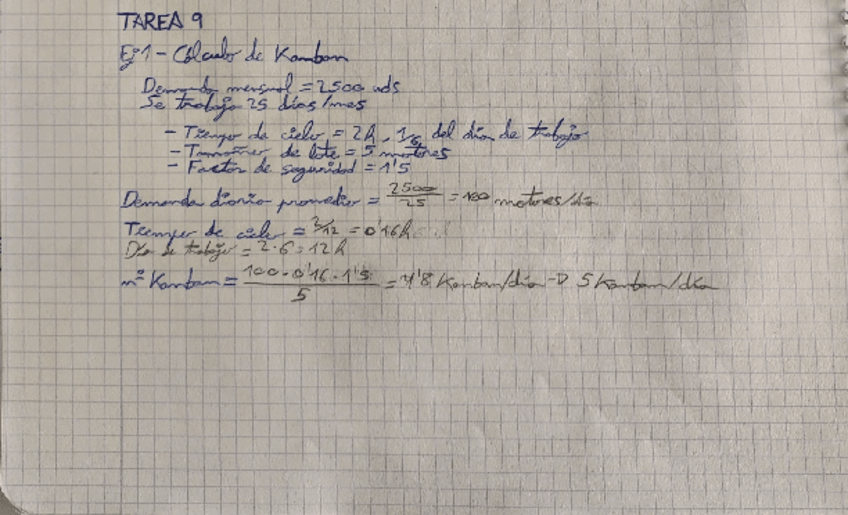 TAREA 9
Ej 1 - Cálculo de Kanban
Demanda mensual = 2500 uds
Se trabaja 25 días/mes
- Tiempo de ciclo = 2h, 1/6 del día de trabajo
- Tamaño de lote = 5 motores
- Factor de seguridad = 1'5
Demanda diaria promedio = 2500/25 = 100 motores/día
Tiempo de ciclo = 2/12 = 0'16h
Día de trabajo = 2·6 = 12h
nº Kanban = 100·0'16·1'5 / 5 = 4'8 Kanban/día → 5 Kanban/día